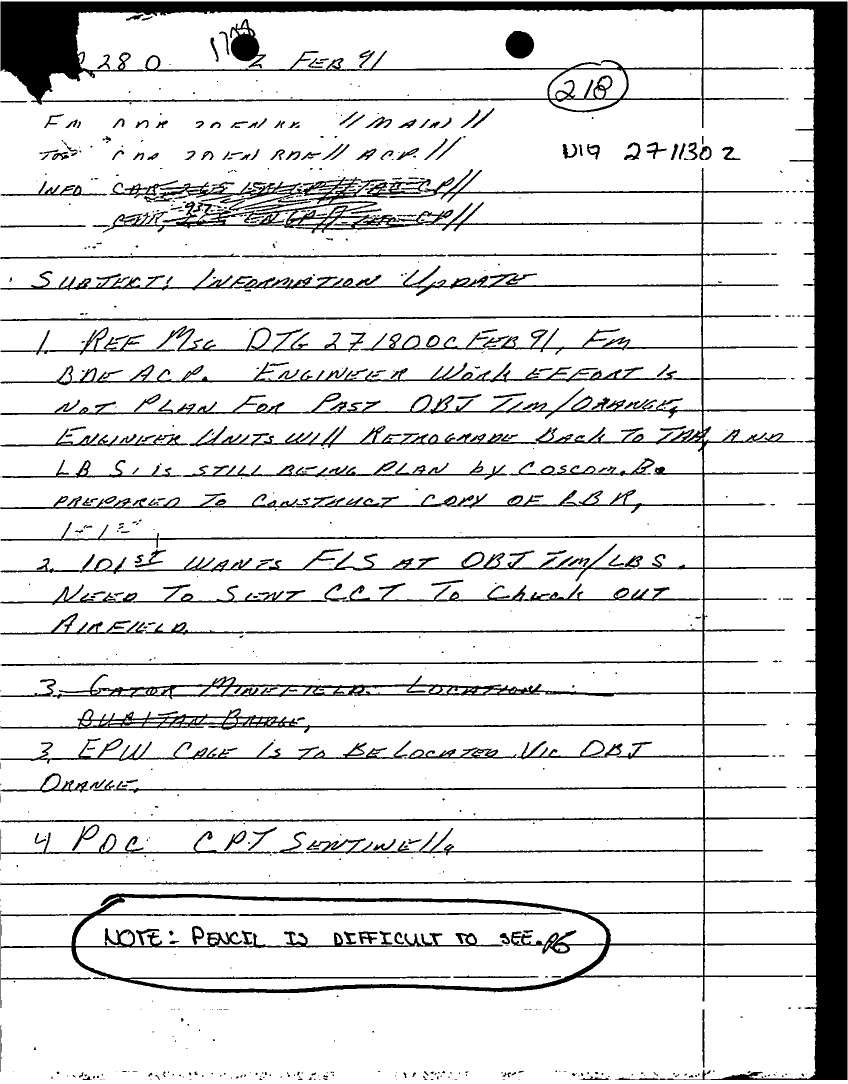 280 Z FEB 91
218
FM CDR 20 EN BDE //MAIN//
TO: CDR 20 EN BDE// ACP. //
DTG 271130Z
INFO CDR EN GP // TAC CP//
CDR, 937 EN GP// TAC CP//
SUBJECT: INFORMATION UPDATE
1. REF MSG DTG 271800C FEB 91, FM
BDE ACP. ENGINEER WORK EFFORT IS
NOT PLAN FOR PAST OBJ TIM/ORANGE,
ENGINEER UNITS WILL RETROGRADE BACK TO TAA, AND
LB S, IS STILL BEING PLAN by COSCOM. Be
PREPARED TO CONSTRUCT COPY OF LB R,
2. 101ST WANTS FLS AT OBJ TIM/LB S.
NEED TO SENT CCT TO Check OUT
AIRFIELD.
3. GATOR MINEFIELD LOCATION
BRIDGE,
3. EPW CAGE IS TO BE LOCATED VIC OBJ
ORANGE.
4 POC CPT SENTINELLA
NOTE: PENCIL IS DIFFICULT TO SEE.